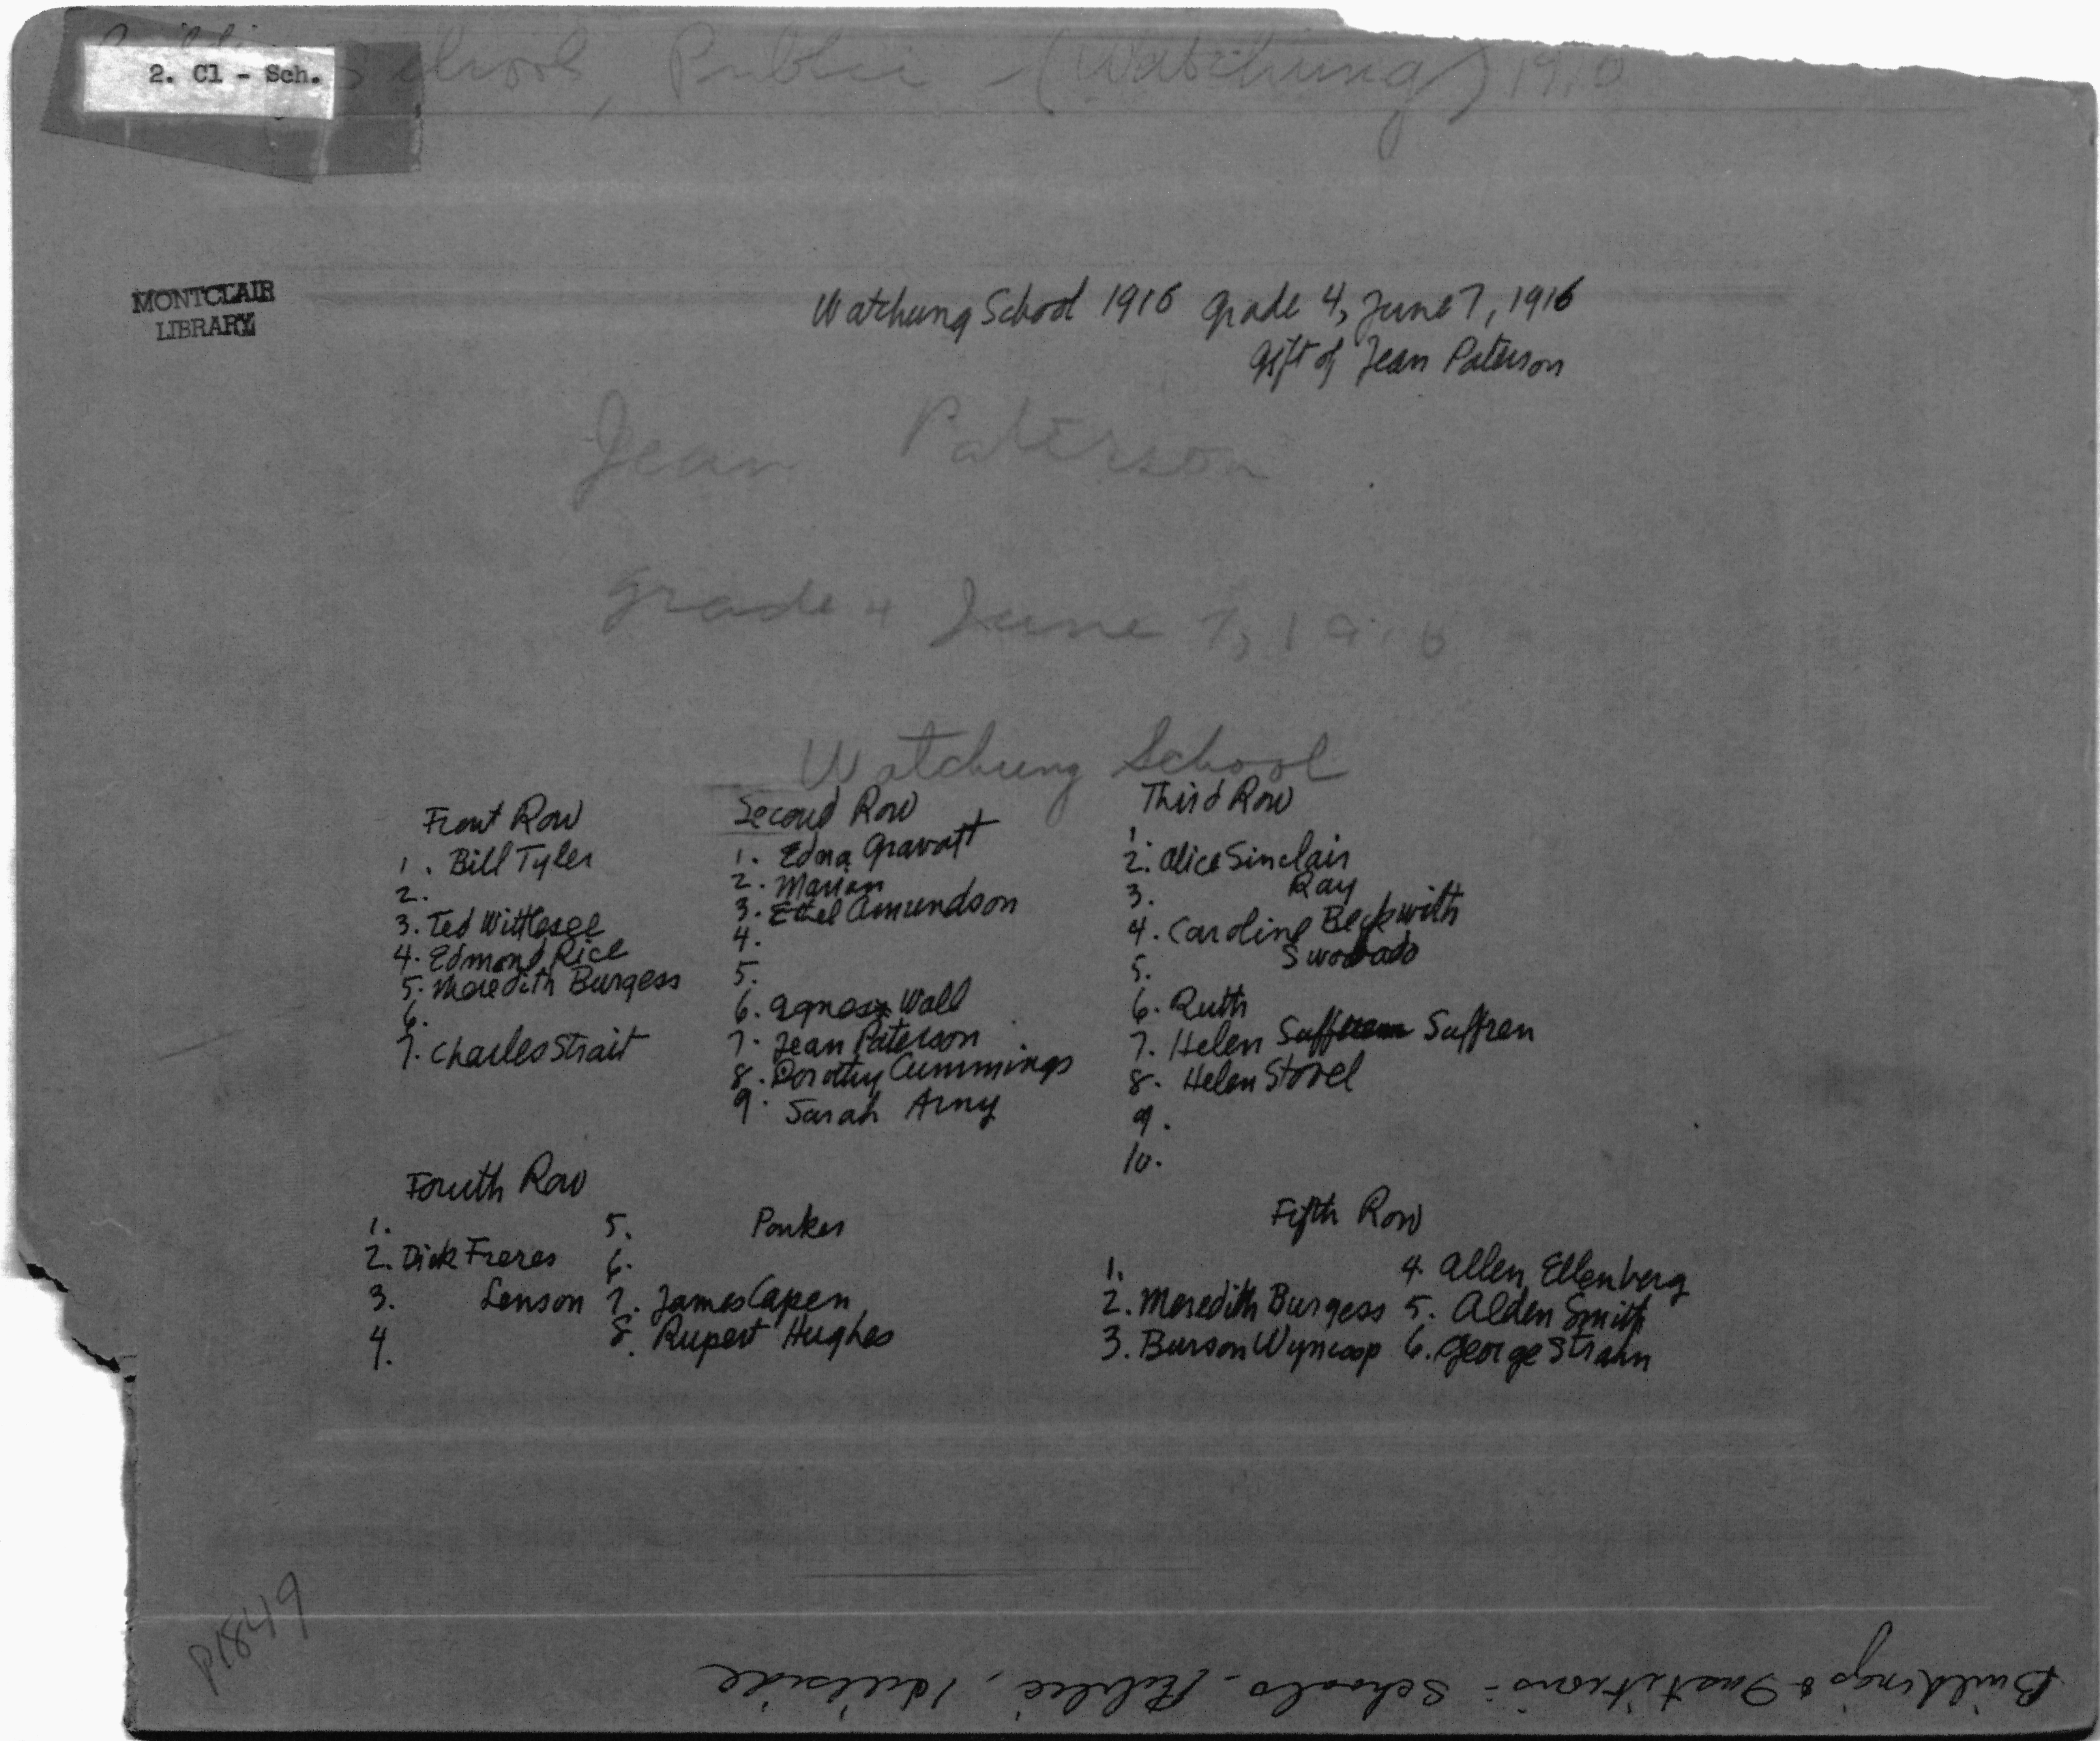 School, Public - (Watchung) 1910
2. Cl - Sch.
MONTCLAIR
LIBRARY
Watchung School 1916 Grade 4, June 7, 1916
Gift of Jean Paterson
Jean Paterson
Grade 4 June 7, 1916
Watchung School
Front Row
1. Bill Tyler
2.
3. Ted Wittlesee
4. Edmond Rice
5. Meredith Burgess
6.
7. Charles Strait
Second Row
1. Edna Gravatt
2. Marian
3. Ethel Amundson
4.
5.
6. Agnes Wall
7. Jean Paterson
8. Dorothy Cummings
9. Sarah Arny
Third Row
1.
2. Alice Sinclair
3. Ray
4. Caroline Beckwith
5. Swobado
6. Ruth
7. Helen Suffren
8. Helen Stovel
9.
10.
Fourth Row
1.
2. Dick Freres
3. Lenson
4.
5. Parker
6.
7. James Capen
8. Rupert Hughes
Fifth Row
1.
2. Meredith Burgess
3. Burson Wyncoop
4. Allen Ellenberg
5. Alden Smith
6. George Strahn
P1849
Buildings & Institutions - Schools - Public, Hillside